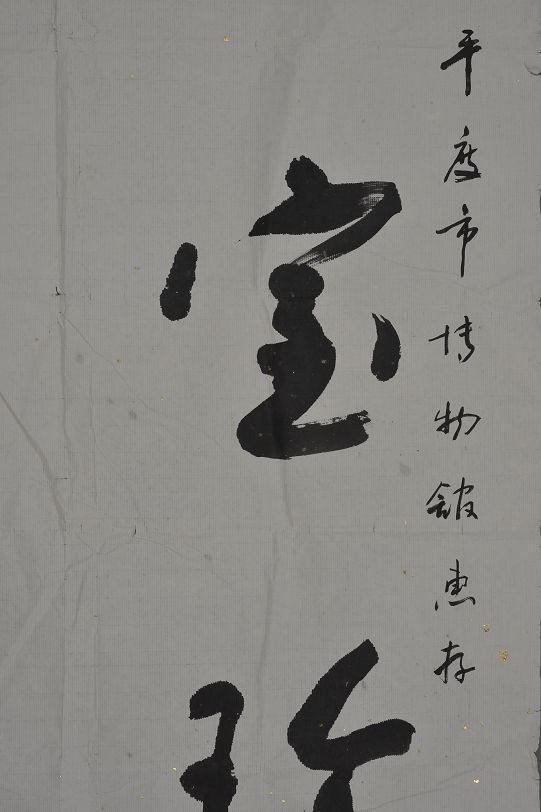 平度市博物館惠存
宝